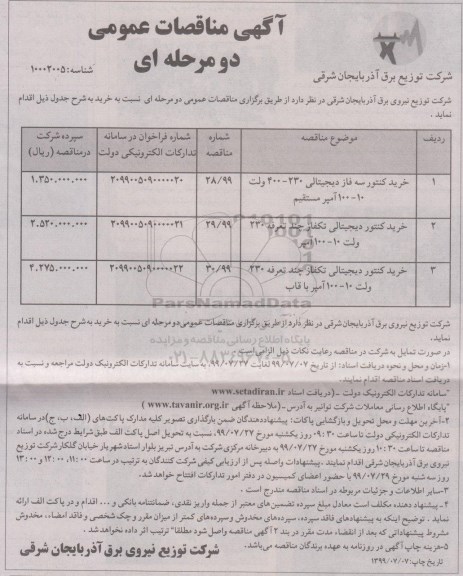 آگهی مناقصات عمومی
دو مرحله ای
شناسه: ۱۰۰۰۲۰۰۵
شرکت توزیع برق آذربایجان شرقی
شرکت توزیع نیروی برق آذربایجان شرقی در نظر دارد از طریق برگزاری مناقصات عمومی دو مرحله ای نسبت به خرید به شرح جدول ذیل اقدام
نماید .
ردیف موضوع مناقصه شماره مناقصه شماره فراخوان در سامانه تدارکات الکترونیکی دولت سپرده شرکت درمناقصه (ریال)
۱ خرید کنتور سه فاز دیجیتالی ۲۳۰-۴۰۰ ولت ۱۰-۱۰۰ آمپر مستقیم ۲۸/۹۹ ۲۰۹۹۰۰۵۰۹۰۰۰۰۰۲۰ ۱.۳۵۰.۰۰۰.۰۰۰
۲ خرید کنتور دیجیتالی تکفاز چند تعرفه ۲۳۰ ولت ۱۰-۱۰۰ آمپر ۲۹/۹۹ ۲۰۹۹۰۰۵۰۹۰۰۰۰۰۲۱ ۲.۵۲۰.۰۰۰.۰۰۰
۳ خرید کنتور دیجیتالی تکفاز چند تعرفه ۲۳۰ ولت ۱۰-۱۰۰ آمپر با قاب ۳۰/۹۹ ۲۰۹۹۰۰۵۰۹۰۰۰۰۰۲۲ ۴.۲۷۵.۰۰۰.۰۰۰
ParsNamadData
پایگاه اطلاع رسانی مناقصه و مزایده
شرکت توزیع نیروی برق آذربایجان شرقی در نظر دارد از طریق برگزاری مناقصات عمومی دو مرحله ای نسبت به خرید به شرح جدول ذیل اقدام
نماید.
در صورت تمایل به شرکت در مناقصه رعایت نکات ذیل الزامی است.
۱-زمان و محل و نحوه دریافت اسناد: از تاریخ ۹۹/۰۷/۰۷ لغایت به سایت سامانه تدارکات الکترونیک دولت مراجعه و نسبت به
دریافت اسناد مناقصه اقدام نمایند.
"سامانه تدارکات الکترونیک دولت -(دریافت اسناد www.setadiran.ir
"پایگاه اطلاع رسانی معاملات شرکت توانیر به آدرس-(ملاحظه آگهی www.tavanir.org.ir )
۲-آخرین مهلت و محل تحویل و بازگشایی پاکات: پیشنهاددهندگان ضمن بارگذاری تصویر کلیه مدارک پاکت‌های (الف، ب، ج)در سامانه
تدارکات الکترونیکی دولت تا ساعت ۰۹:۳۰ روز یکشنبه مورخ ۹۹/۰۷/۲۷، نسبت به تحویل اصل پاکت الف طبق شرایط درج شده در اسناد
مناقصه تا ساعت ۱۰:۳۰ روز یکشنبه مورخ ۹۹/۰۷/۲۷ به دبیرخانه مرکزی شرکت به آدرس تبریز بلوار استاد شهریار خیابان گلکار شرکت توزیع
نیروی برق آذربایجان شرقی اقدام نمایند .پیشنهادات واصله پس از ارزیابی کیفی شرکت کنندگان به ترتیب در ساعت ۱۱:۰۰، ۱۲:۰۰ و ۱۳:۰۰
روز سه شنبه مورخ ۹۹/۰۷/۲۹ با حضور اعضای کمیسیون در دفتر امور تدارکات افتتاح خواهد شد.
۳-سایر اطلاعات و جزئیات مربوطه در اسناد مناقصه مندرج است .
۴-پیشنهاد دهنده مکلف است معادل مبلغ سپرده تضمین‌های معتبر از جمله واریز نقدی، ضمانتنامه بانکی و ... اقدام و در پاکت الف ارائه
نماید . توضیح اینکه به پیشنهادهای فاقد سپرده، سپرده‌های مخدوش و سپرده‌های کمتر از میزان مقرر و چک شخصی و فاقد امضاء، مخدوش
مشروط پیشنهاداتی که بعد از انقضاء مدت مقرر در بند ۲ آگهی مناقصه واصل شود مطلقا" ترتیب اثر داده نخواهد شد .
۵-هزینه چاپ آگهی در روزنامه به عهده برندگان مناقصه می‌باشد.
تاریخ چاپ: ۱۳۹۹/۰۷/۰۷
شرکت توزیع نیروی برق آذربایجان شرقی